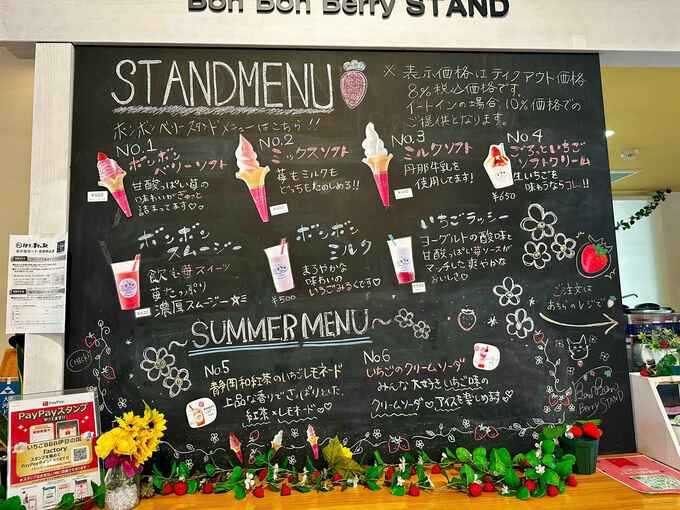 Bon Bon Berry STAND
STANDMENU
※ 表示価格はテイクアウト価格
8%税込価格です。
イートインの場合、10%価格での
ご提供となります。
ボンボンベリースタンドメニューはこちら!!
No.1
ボンボン
ベリーソフト
甘酸っぱい苺の
味わいがぎゅっと
詰まってます♡
No.2
ミックスソフト
苺もミルクも
どっちもたのしめる!!
No.3
ミルクソフト
丹那牛乳を
使用してます!
No.4
ごろっといちご
ソフトクリーム
生いちごを
味わうならコレ!!
¥650
ボンボン
スムージー
飲む苺スイーツ
苺たっぷり
濃厚スムージー☆
ボンボン
ミルク
まろやかな
味わいの
いちごみるくです♡
¥500
いちごラッシー
ヨーグルトの酸味と
甘酸っぱい苺ソースが
マッチした爽やかな
おいしさ♡
ご注文は
あちらのレジで
SUMMER MENU
CHECK!
No.5
静岡和紅茶のいちごレモネード
上品な香りでさっぱりとした
紅茶×レモネード♡
No.6
いちごのクリームソーダ
みんな大好きいちご味の
クリームソーダ♡アイスを楽しめます♡
Bon Bon
Berry STAND
PayPay
PayPayスタンプ
いちごBBB伊豆の国
Factory